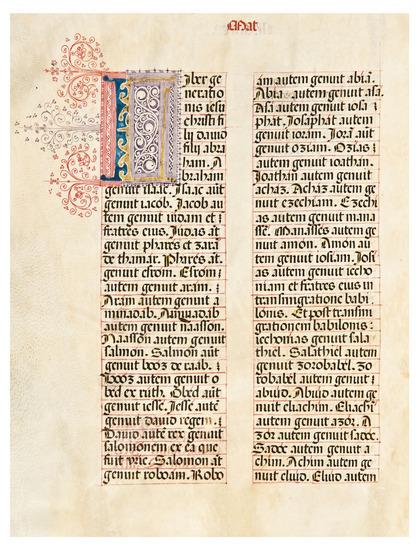 Mat
Liber ge
neratio
nis iesu
christi fi
ly dauid
fily abra
ham. A
braham
genuit isaac. Isaac aut
genuit iacob. Jacob au
tem genuit iudam et
fratres eius. Judas at
genuit phares et zara
de thamar. Phares at.
genuit esrom. Esrom
autem genuit aram.
Aram autem genuit a
minadab. Aminadab
autem genuit naasson.
Naasson autem genuit
salmon. Salmon aut
genuit booz de raab.
Booz autem genuit o
bed ex ruth. Obed aut
genuit iesse. Jesse aute
genuit dauid regem
Dauid aute rex genuit
salomonem ex ea que
fuit vrie. Salomon at
genuit roboam. Robo
am autem genuit abia.
Abia autem genuit asa.
Asa autem genuit iosa
phat. Josaphat autem
genuit ioram. Jora aut
genuit oziam. Ozias
autem genuit ioathan.
Joathan autem genuit
achaz. Achaz autem ge
nuit ezechiam. Ezechi
as autem genuit mana
sse. Manasses autem ge
nuit amon. Amon au
tem genuit iosiam. Josi
as autem genuit iecho
niam et fratres eius in
transmigratione babi
lonis. Et post transmi
grationem babilonis:
iechonias genuit sala
thiel. Salathiel autem
genuit zorobabel. Zo
robabel autem genuit
abiud. Abiud autem ge
nuit eliachim. Eliachi
autem genuit azor. A
zor autem genuit sadoc.
Sadoc autem genuit a
chim. Achim autem ge
nuit eliud. Eliud autem